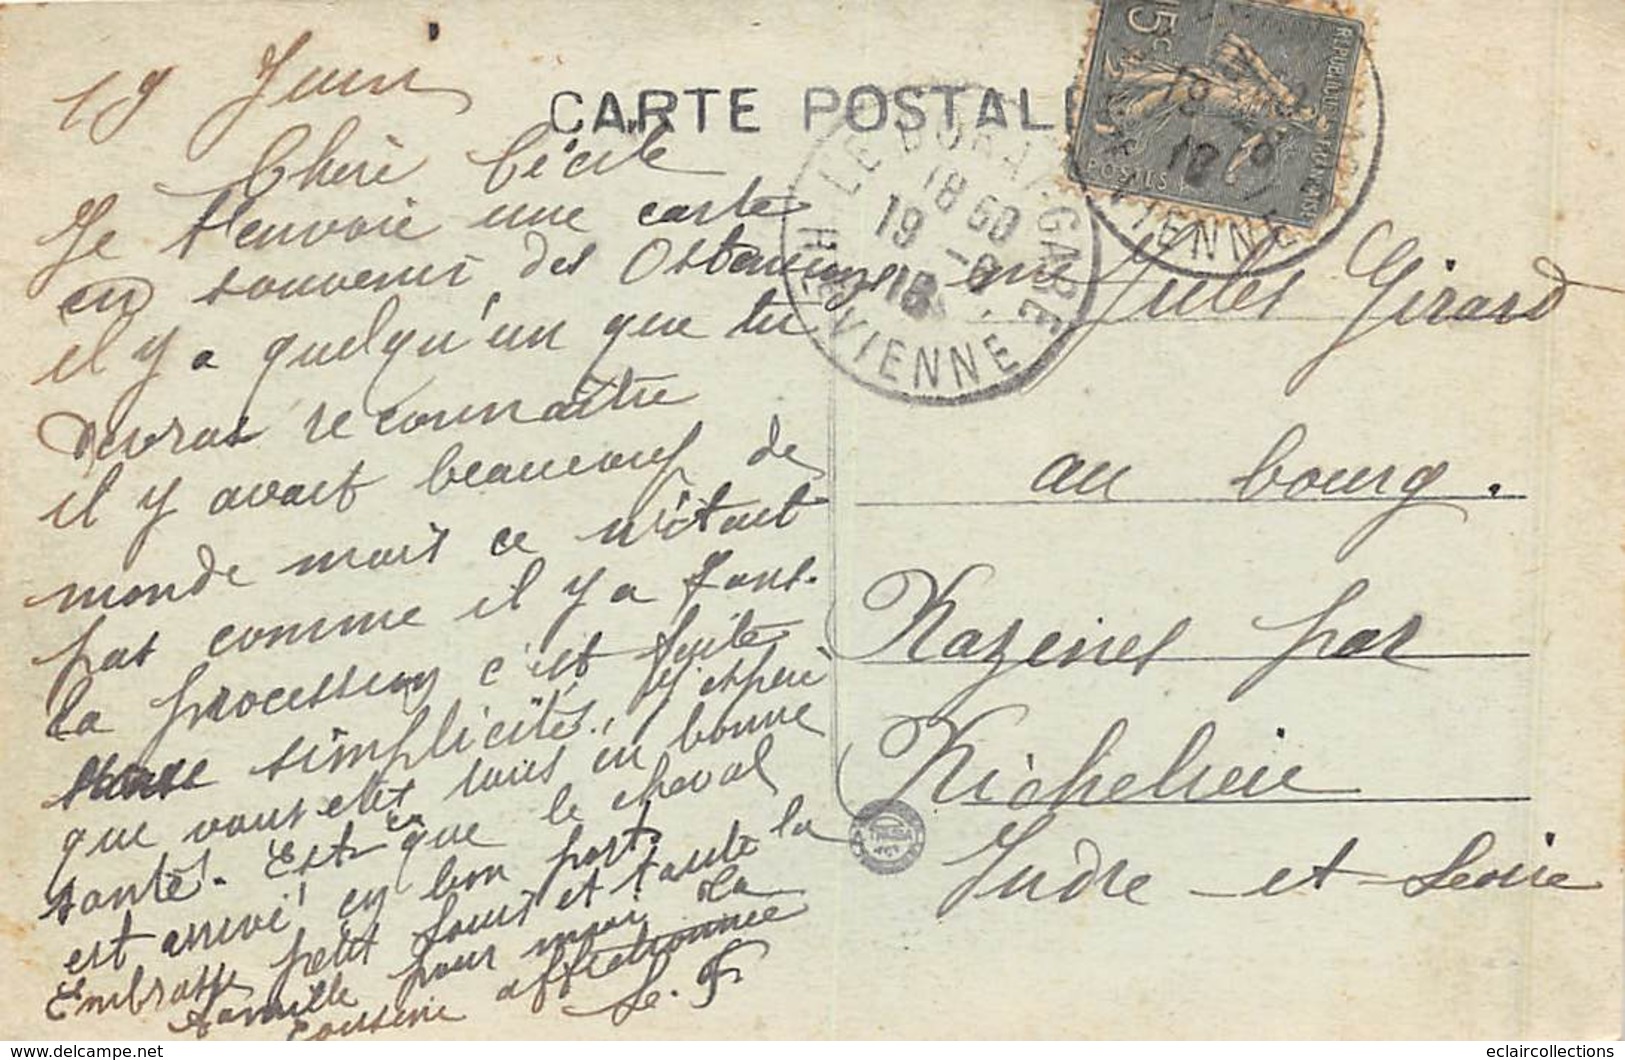 19 Juin
CARTE POSTALE
Chère Cécile
Je t'envoie une carte
en souvenir des Ostensions
il y a quelqu'un que tu
devras reconnaître
il y avait beaucoup de
monde mais ce n'était
pas comme il y a 7 ans.
la processions c'est faite
simplicités, j'espère
que vous etes tous en bonne
santé. Est ce que le cheval
est arrivé en bon port.
Embrasse petit Louis et toute la
famille pour moi. La
cousine affectionnée
15c
REPUBLIQUE FRANÇAISE
POSTES
VIENNE
LE DORAT GARE
18 50
19 -6
18
HTE VIENNE
Jules Girard
au bourg.
Razines par
Richelieu
Indre-et-Loire
www.delcampe.net
eclaircollections